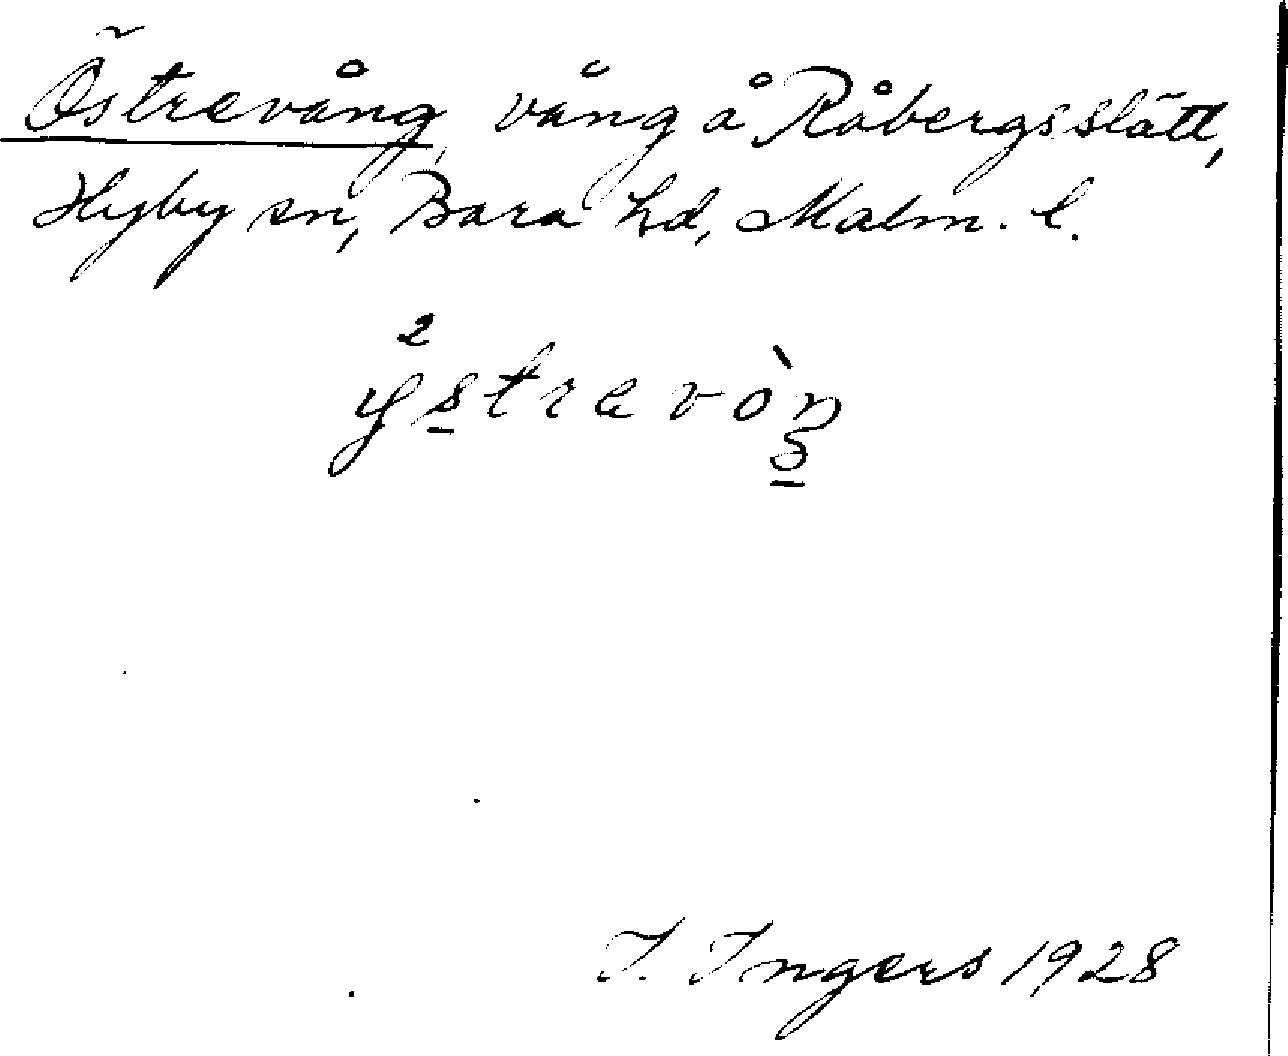 Östrevång, vång å Råbergsslätt,
Hyby sn, Bara hd, Malm. l.
I. Ingers 1928